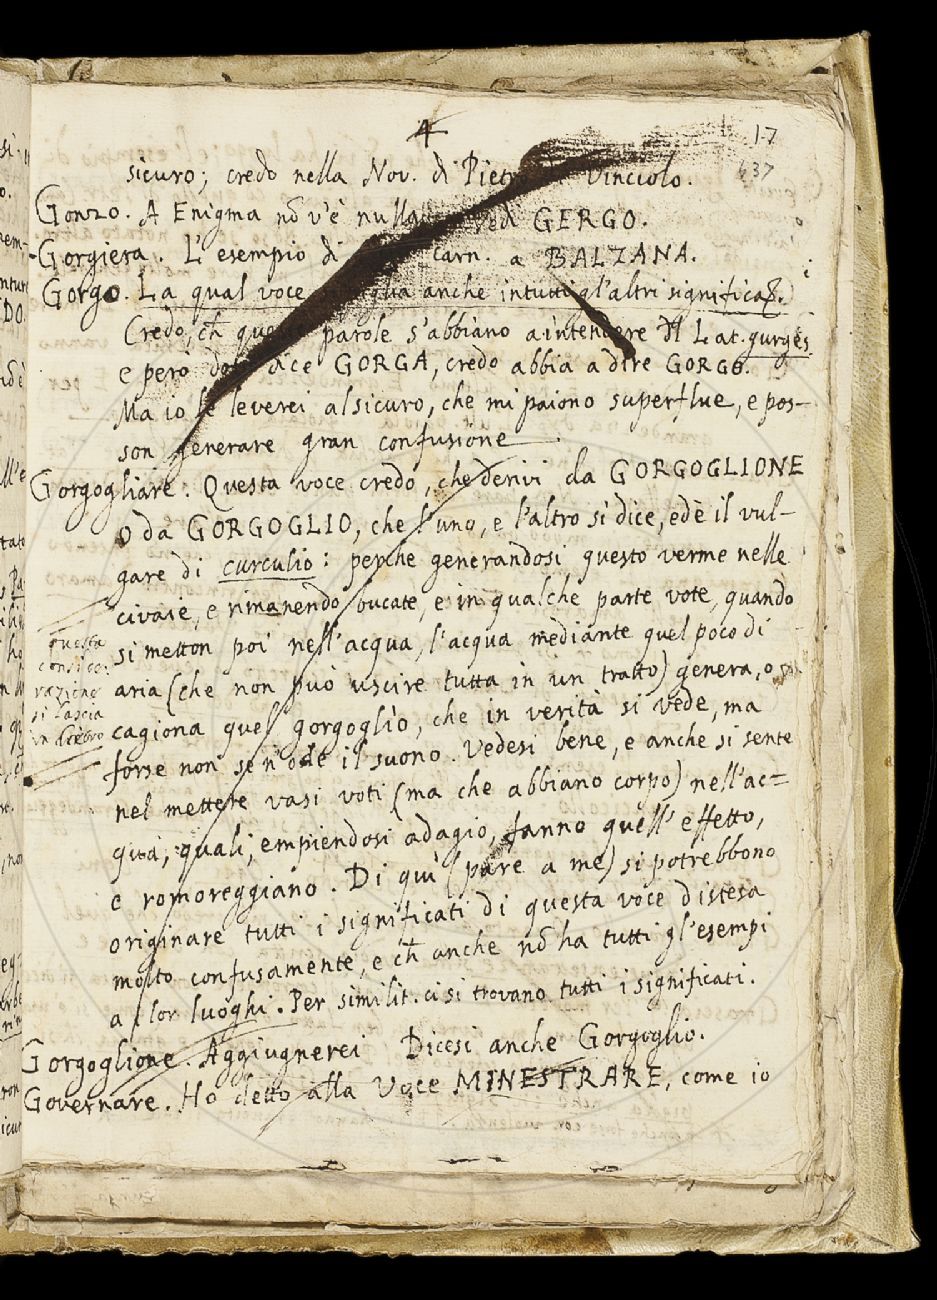 4
17
437
sicuro; credo nella Nov. di Pietro Vinciolo.
Gonzo. A Enigma nō v'è nulla ved. GERGO.
Gorgiera. L'esempio di carn. a BALZANA.
Gorgo. La qual voce anche intutti gl'altri significaz.
Credo, ch̄ parole s'abbiano a intendere dl Lat. gurges
e però dice GORGA, credo abbia a dire GORGO.
Ma io le leverei alsicuro, che mi paiono superflue, e pos-
son generare gran confusione
Gorgogliare. Questa voce credo, che derivi da GORGOGLIONE
O da GORGOGLIO, che l'uno, e l'altro si dice, ed è il vul-
gare di curculio: perche generandosi questo verme nelle
civaie, e rimanendo bucate, e in qualche parte vote, quando
si metton poi nell'acqua, l'acqua mediante quel poco di
aria (che non può uscire tutta in un tratto) genera, o
cagiona quel gorgoglìo, che in verità si vede, ma
forse non se n'ode il suono. Vedesi bene, e anche si sente
nel mettere vasi voti (ma che abbiano corpo) nell'ac=
qua, quali, empiendosi adagio, fanno quell'effetto,
e romoreggiano. Di quì (pare a me) si potrebbono
originare tutti i significati di questa voce distesa
molto confusamente, e ch̄ anche nō ha tutti gl'esempi
a i lor luoghi. Per similit. ci si trovano tutti i significati.
Gorgoglione. Aggiugnerei Dicesi anche Gorgoglio.
Governare. Ho detto alla Voce MINESTRARE, come io
questa
conside:
razione
si lascia
in